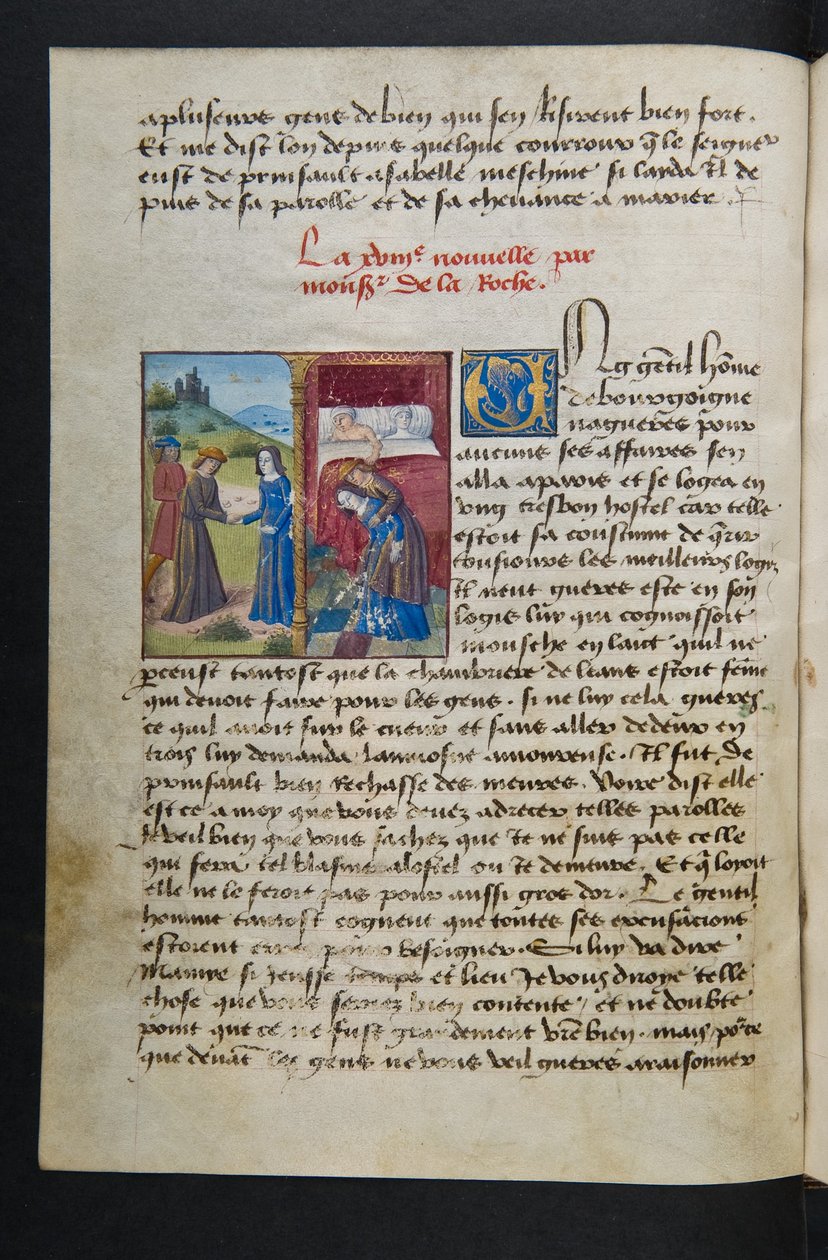 a pluseurs gens de bien qui sen Risirent bien fort.
Et me dist lon depuis quelque courroux q̃ le seigneur
eust de prinsault a ysabelle meschine si larda Il de
puis de sa parolle et de sa cheuance a marier
La xviijᵉ nouuelle par
monsʳ de la Roche.
Ung gẽtil hõme
de bourgoigne
nagueres pour
aucuns ses affaires sen
alla a paris et se logea en
vng tresbon hostel car telle
estoit sa coustume de q̃rir
tousiours les meilleurs logis
Il neut gueres este en son
logis luy qui cognoissoit
mousche en laict quil ne
ꝑceust tantost que la chambriere de liens estoit fẽme
qui deuoit faire pour les gens. si ne luy cela gueres
ce quil auoit sur le cueur et sans aller de deux en
trois luy demanda laumosne amoureuse. Il fut de
prinsault bien Rechasse des meures. Voire dist elle
est ce a moy que vous deuez adrecer telles parolles
Je veil bien que vous sachez que Je ne suis pas celle
qui fera tel blasme a lostel ou Je demeure. Et q̃ loyoit
elle ne le feroit pas pour aussi gros dor. Le gentil
homme tantost cogneut que toutes ses excusacions
estoient erres pour besoigner. Si luy va dire
Mamye si Jeusse temps et lieu Je vous diroye telle
chose que vous seriez bien contente / et ne doubte
point que ce ne fust grandement vr̃e bien. mais poʳce
que deuãt les gens ne vous veil gueres araisonner